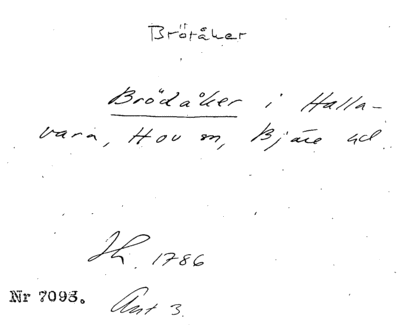 Brötåker
Brödåker i Halla-
vara, Hov sn, Bjäre hd.
1786
Nr 7093.
Ant 3.